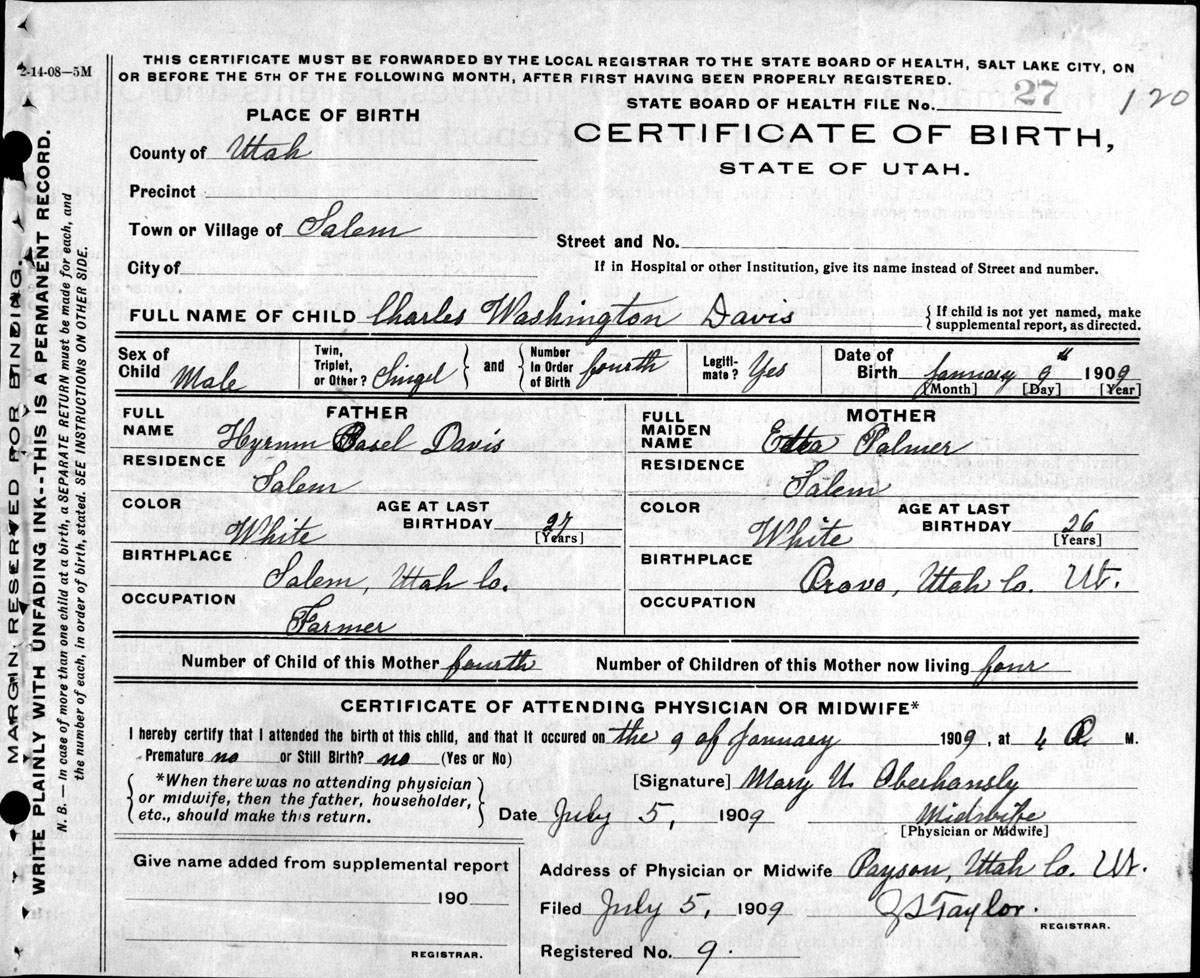 2-14-08—5M
THIS CERTIFICATE MUST BE FORWARDED BY THE LOCAL REGISTRAR TO THE STATE BOARD OF HEALTH, SALT LAKE CITY, ON
OR BEFORE THE 5TH OF THE FOLLOWING MONTH, AFTER FIRST HAVING BEEN PROPERLY REGISTERED.
STATE BOARD OF HEALTH FILE No. 27 120
PLACE OF BIRTH
CERTIFICATE OF BIRTH,
STATE OF UTAH.
County of Utah
Precinct
Town or Village of Salem
Street and No.
City of
If in Hospital or other Institution, give its name instead of Street and number.
FULL NAME OF CHILD Charles Washington Davis { If child is not yet named, make
supplemental report, as directed.
Sex of Child Male
Twin, Triplet, or Other? Singel } and { Number In Order of Birth fourth
Legiti-mate? Yes
Date of Birth January 9" 1909
[Month] [Day] [Year]
FATHER
FULL NAME Hyrum Basel Davis
RESIDENCE
Salem
COLOR
White
AGE AT LAST BIRTHDAY 27
[Years]
BIRTHPLACE
Salem, Utah Co.
OCCUPATION
Farmer
MOTHER
FULL MAIDEN NAME Palmer
RESIDENCE
Salem
COLOR
White
AGE AT LAST BIRTHDAY 26
[Years]
BIRTHPLACE
Provo, Utah Co. Ut.
OCCUPATION
Number of Child of this Mother fourth Number of Children of this Mother now living four
CERTIFICATE OF ATTENDING PHYSICIAN OR MIDWIFE*
I hereby certify that I attended the birth of this child, and that it occured on the 9 of January 1909, at 4 M.
Premature no or Still Birth? no (Yes or No)
{ *When there was no attending physician
or midwife, then the father, householder,
etc., should make this return. }
[Signature] Mary U. Oberhansly
Date July 5, 1909 Midwife
[Physician or Midwife]
Give name added from supplemental report
190
REGISTRAR.
Address of Physician or Midwife Payson, Utah Co. Ut.
Filed July 5, 1909 Taylor.
REGISTRAR.
Registered No. 9.
MARGIN RESERVED FOR BINDING.
WRITE PLAINLY WITH UNFADING INK--THIS IS A PERMANENT RECORD.
N. B. — In case of more than one child at a birth, a SEPARATE RETURN must be made for each, and
the number of each, in order of birth, stated. SEE INSTRUCTIONS ON OTHER SIDE.